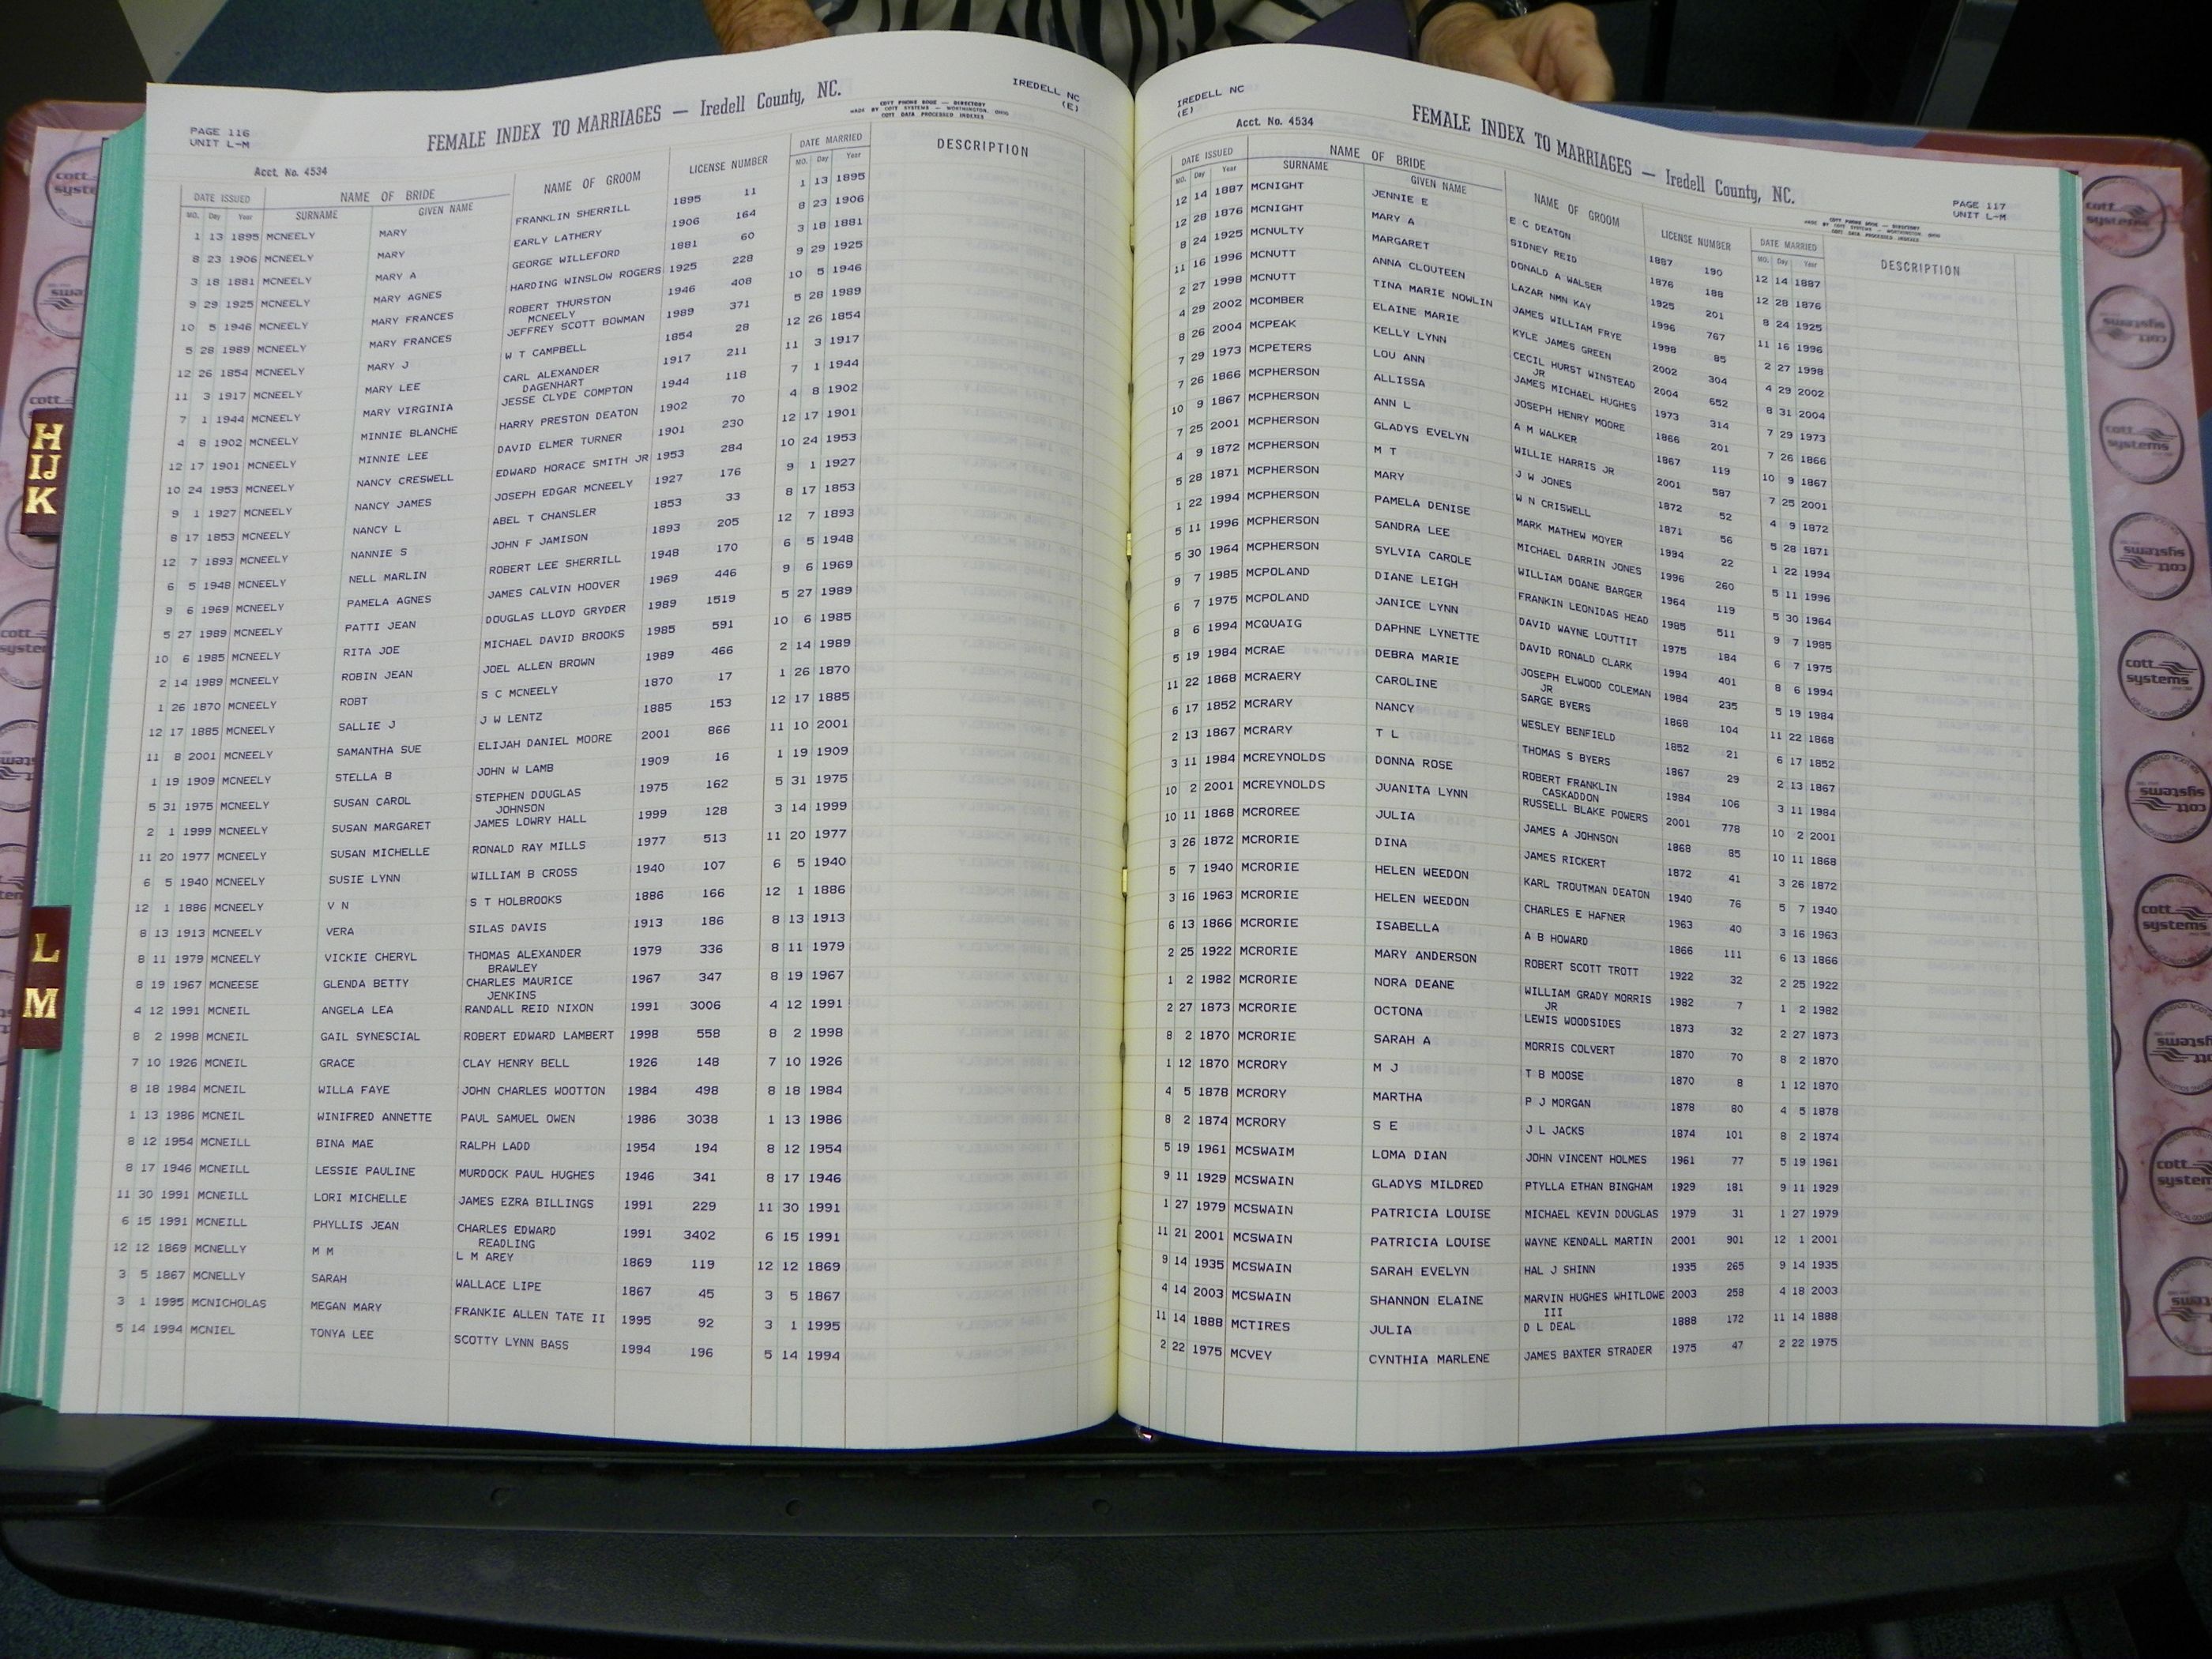 PAGE 116
UNIT L-M
FEMALE INDEX TO MARRIAGES — Iredell County, NC.
MADE BY COTT PHONE BOOK — DIRECTORY
COTT SYSTEMS — WORTHINGTON, OHIO
COTT DATA PROCESSED INDEXES
IREDELL NC
(E)
Acct. No. 4534
DATE ISSUED NAME OF BRIDE NAME OF GROOM LICENSE NUMBER DATE MARRIED DESCRIPTION
MO. Day Year SURNAME GIVEN NAME MO. Day Year
1 13 1895 MCNEELY MARY FRANKLIN SHERRILL 1895 11 1 13 1895
8 23 1906 MCNEELY MARY EARLY LATHERY 1906 164 8 23 1906
3 18 1881 MCNEELY MARY A GEORGE WILLEFORD 1881 60 3 18 1881
9 29 1925 MCNEELY MARY AGNES HARDING WINSLOW ROGERS 1925 228 9 29 1925
10 5 1946 MCNEELY MARY FRANCES ROBERT THURSTON 1946 408 10 5 1946
MCNEELY
5 28 1989 MCNEELY MARY FRANCES JEFFREY SCOTT BOWMAN 1989 371 5 28 1989
12 26 1854 MCNEELY MARY J W T CAMPBELL 1854 28 12 26 1854
11 3 1917 MCNEELY MARY LEE CARL ALEXANDER 1917 211 11 3 1917
DAGENHART
7 1 1944 MCNEELY MARY VIRGINIA JESSE CLYDE COMPTON 1944 118 7 1 1944
4 8 1902 MCNEELY MINNIE BLANCHE HARRY PRESTON DEATON 1902 70 4 8 1902
12 17 1901 MCNEELY MINNIE LEE DAVID ELMER TURNER 1901 230 12 17 1901
10 24 1953 MCNEELY NANCY CRESWELL EDWARD HORACE SMITH JR 1953 284 10 24 1953
9 1 1927 MCNEELY NANCY JAMES JOSEPH EDGAR MCNEELY 1927 176 9 1 1927
8 17 1853 MCNEELY NANCY L ABEL T CHANSLER 1853 33 8 17 1853
12 7 1893 MCNEELY NANNIE S JOHN F JAMISON 1893 205 12 7 1893
6 5 1948 MCNEELY NELL MARLIN ROBERT LEE SHERRILL 1948 170 6 5 1948
9 6 1969 MCNEELY PAMELA AGNES JAMES CALVIN HOOVER 1969 446 9 6 1969
5 27 1989 MCNEELY PATTI JEAN DOUGLAS LLOYD GRYDER 1989 1519 5 27 1989
10 6 1985 MCNEELY RITA JOE MICHAEL DAVID BROOKS 1985 591 10 6 1985
2 14 1989 MCNEELY ROBIN JEAN JOEL ALLEN BROWN 1989 466 2 14 1989
1 26 1870 MCNEELY ROBT S C MCNEELY 1870 17 1 26 1870
12 17 1885 MCNEELY SALLIE J J W LENTZ 1885 153 12 17 1885
11 8 2001 MCNEELY SAMANTHA SUE ELIJAH DANIEL MOORE 2001 866 11 10 2001
1 19 1909 MCNEELY STELLA B JOHN W LAMB 1909 16 1 19 1909
5 31 1975 MCNEELY SUSAN CAROL STEPHEN DOUGLAS 1975 162 5 31 1975
JOHNSON
2 1 1999 MCNEELY SUSAN MARGARET JAMES LOWRY HALL 1999 128 3 14 1999
11 20 1977 MCNEELY SUSAN MICHELLE RONALD RAY MILLS 1977 513 11 20 1977
6 5 1940 MCNEELY SUSIE LYNN WILLIAM B CROSS 1940 107 6 5 1940
12 1 1886 MCNEELY V N S T HOLBROOKS 1886 166 12 1 1886
8 13 1913 MCNEELY VERA SILAS DAVIS 1913 186 8 13 1913
8 11 1979 MCNEELY VICKIE CHERYL THOMAS ALEXANDER 1979 336 8 11 1979
BRAWLEY
8 19 1967 MCNEESE GLENDA BETTY CHARLES MAURICE 1967 347 8 19 1967
JENKINS
4 12 1991 MCNEIL ANGELA LEA RANDALL REID NIXON 1991 3006 4 12 1991
8 2 1998 MCNEIL GAIL SYNESCIAL ROBERT EDWARD LAMBERT 1998 558 8 2 1998
7 10 1926 MCNEIL GRACE CLAY HENRY BELL 1926 148 7 10 1926
8 18 1984 MCNEIL WILLA FAYE JOHN CHARLES WOOTTON 1984 498 8 18 1984
1 13 1986 MCNEIL WINIFRED ANNETTE PAUL SAMUEL OWEN 1986 3038 1 13 1986
8 12 1954 MCNEILL BINA MAE RALPH LADD 1954 194 8 12 1954
8 17 1946 MCNEILL LESSIE PAULINE MURDOCK PAUL HUGHES 1946 341 8 17 1946
11 30 1991 MCNEILL LORI MICHELLE JAMES EZRA BILLINGS 1991 229 11 30 1991
6 15 1991 MCNEILL PHYLLIS JEAN CHARLES EDWARD 1991 3402 6 15 1991
READLING
12 12 1869 MCNELLY M M L M AREY 1869 119 12 12 1869
3 5 1867 MCNELLY SARAH WALLACE LIPE 1867 45 3 5 1867
3 1 1995 MCNICHOLAS MEGAN MARY FRANKIE ALLEN TATE II 1995 92 3 1 1995
5 14 1994 MCNIEL TONYA LEE SCOTTY LYNN BASS 1994 196 5 14 1994
IREDELL NC
(E)
Acct. No. 4534
FEMALE INDEX TO MARRIAGES — Iredell County, NC.
PAGE 117
UNIT L-M
DATE ISSUED NAME OF BRIDE NAME OF GROOM LICENSE NUMBER DATE MARRIED DESCRIPTION
MO. Day Year SURNAME GIVEN NAME MO. Day Year
12 14 1887 MCNIGHT JENNIE E E C DEATON 1887 190 12 14 1887
12 28 1876 MCNIGHT MARY A SIDNEY REID 1876 188 12 28 1876
8 24 1925 MCNULTY MARGARET DONALD A WALSER 1925 201 8 24 1925
11 16 1996 MCNUTT ANNA CLOUTEEN LAZAR NMN KAY 1996 767 11 16 1996
2 27 1998 MCNUTT TINA MARIE NOWLIN JAMES WILLIAM FRYE 1998 85 2 27 1998
4 29 2002 MCOMBER ELAINE MARIE KYLE JAMES GREEN 2002 304 4 29 2002
8 26 2004 MCPEAK KELLY LYNN CECIL HURST WINSTEAD 2004 652 8 31 2004
JR
7 29 1973 MCPETERS LOU ANN JAMES MICHAEL HUGHES 1973 314 7 29 1973
7 26 1866 MCPHERSON ALLISSA JOSEPH HENRY MOORE 1866 201 7 26 1866
10 9 1867 MCPHERSON ANN L A M WALKER 1867 119 10 9 1867
7 25 2001 MCPHERSON GLADYS EVELYN WILLIE HARRIS JR 2001 587 7 25 2001
4 9 1872 MCPHERSON M T J W JONES 1872 52 4 9 1872
5 28 1871 MCPHERSON MARY W N CRISWELL 1871 56 5 28 1871
1 22 1994 MCPHERSON PAMELA DENISE MARK MATHEW MOYER 1994 22 1 22 1994
5 11 1996 MCPHERSON SANDRA LEE MICHAEL DARRIN JONES 1996 260 5 11 1996
5 30 1964 MCPHERSON SYLVIA CAROLE WILLIAM DOANE BARGER 1964 119 5 30 1964
9 7 1985 MCPOLAND DIANE LEIGH FRANKIN LEONIDAS HEAD 1985 511 9 7 1985
6 7 1975 MCPOLAND JANICE LYNN DAVID WAYNE LOUTTIT 1975 184 6 7 1975
8 6 1994 MCQUAIG DAPHNE LYNETTE DAVID RONALD CLARK 1994 401 8 6 1994
5 19 1984 MCRAE DEBRA MARIE JOSEPH ELWOOD COLEMAN 1984 235 5 19 1984
JR
11 22 1868 MCRAERY CAROLINE SARGE BYERS 1868 104 11 22 1868
6 17 1852 MCRARY NANCY WESLEY BENFIELD 1852 21 6 17 1852
2 13 1867 MCRARY T L THOMAS S BYERS 1867 29 2 13 1867
3 11 1984 MCREYNOLDS DONNA ROSE ROBERT FRANKLIN 1984 106 3 11 1984
CASKADDON
10 2 2001 MCREYNOLDS JUANITA LYNN RUSSELL BLAKE POWERS 2001 778 10 2 2001
10 11 1868 MCROREE JULIA JAMES A JOHNSON 1868 85 10 11 1868
3 26 1872 MCRORIE DINA JAMES RICKERT 1872 41 3 26 1872
5 7 1940 MCRORIE HELEN WEEDON KARL TROUTMAN DEATON 1940 76 5 7 1940
3 16 1963 MCRORIE HELEN WEEDON CHARLES E HAFNER 1963 40 3 16 1963
6 13 1866 MCRORIE ISABELLA A B HOWARD 1866 111 6 13 1866
2 25 1922 MCRORIE MARY ANDERSON ROBERT SCOTT TROTT 1922 32 2 25 1922
1 2 1982 MCRORIE NORA DEANE WILLIAM GRADY MORRIS 1982 7 1 2 1982
JR
2 27 1873 MCRORIE OCTONA LEWIS WOODSIDES 1873 32 2 27 1873
8 2 1870 MCRORIE SARAH A MORRIS COLVERT 1870 70 8 2 1870
1 12 1870 MCRORY M J T B MOOSE 1870 8 1 12 1870
4 5 1878 MCRORY MARTHA P J MORGAN 1878 80 4 5 1878
8 2 1874 MCRORY S E J L JACKS 1874 101 8 2 1874
5 19 1961 MCSWAIM LOMA DIAN JOHN VINCENT HOLMES 1961 77 5 19 1961
9 11 1929 MCSWAIN GLADYS MILDRED PTYLLA ETHAN BINGHAM 1929 181 9 11 1929
1 27 1979 MCSWAIN PATRICIA LOUISE MICHAEL KEVIN DOUGLAS 1979 31 1 27 1979
11 21 2001 MCSWAIN PATRICIA LOUISE WAYNE KENDALL MARTIN 2001 901 12 1 2001
9 14 1935 MCSWAIN SARAH EVELYN HAL J SHINN 1935 265 9 14 1935
4 14 2003 MCSWAIN SHANNON ELAINE MARVIN HUGHES WHITLOWE 2003 258 4 18 2003
III
11 14 1888 MCTIRES JULIA D L DEAL 1888 172 11 14 1888
2 22 1975 MCVEY CYNTHIA MARLENE JAMES BAXTER STRADER 1975 47 2 22 1975
H
IJ
K
L
M
cott
systems